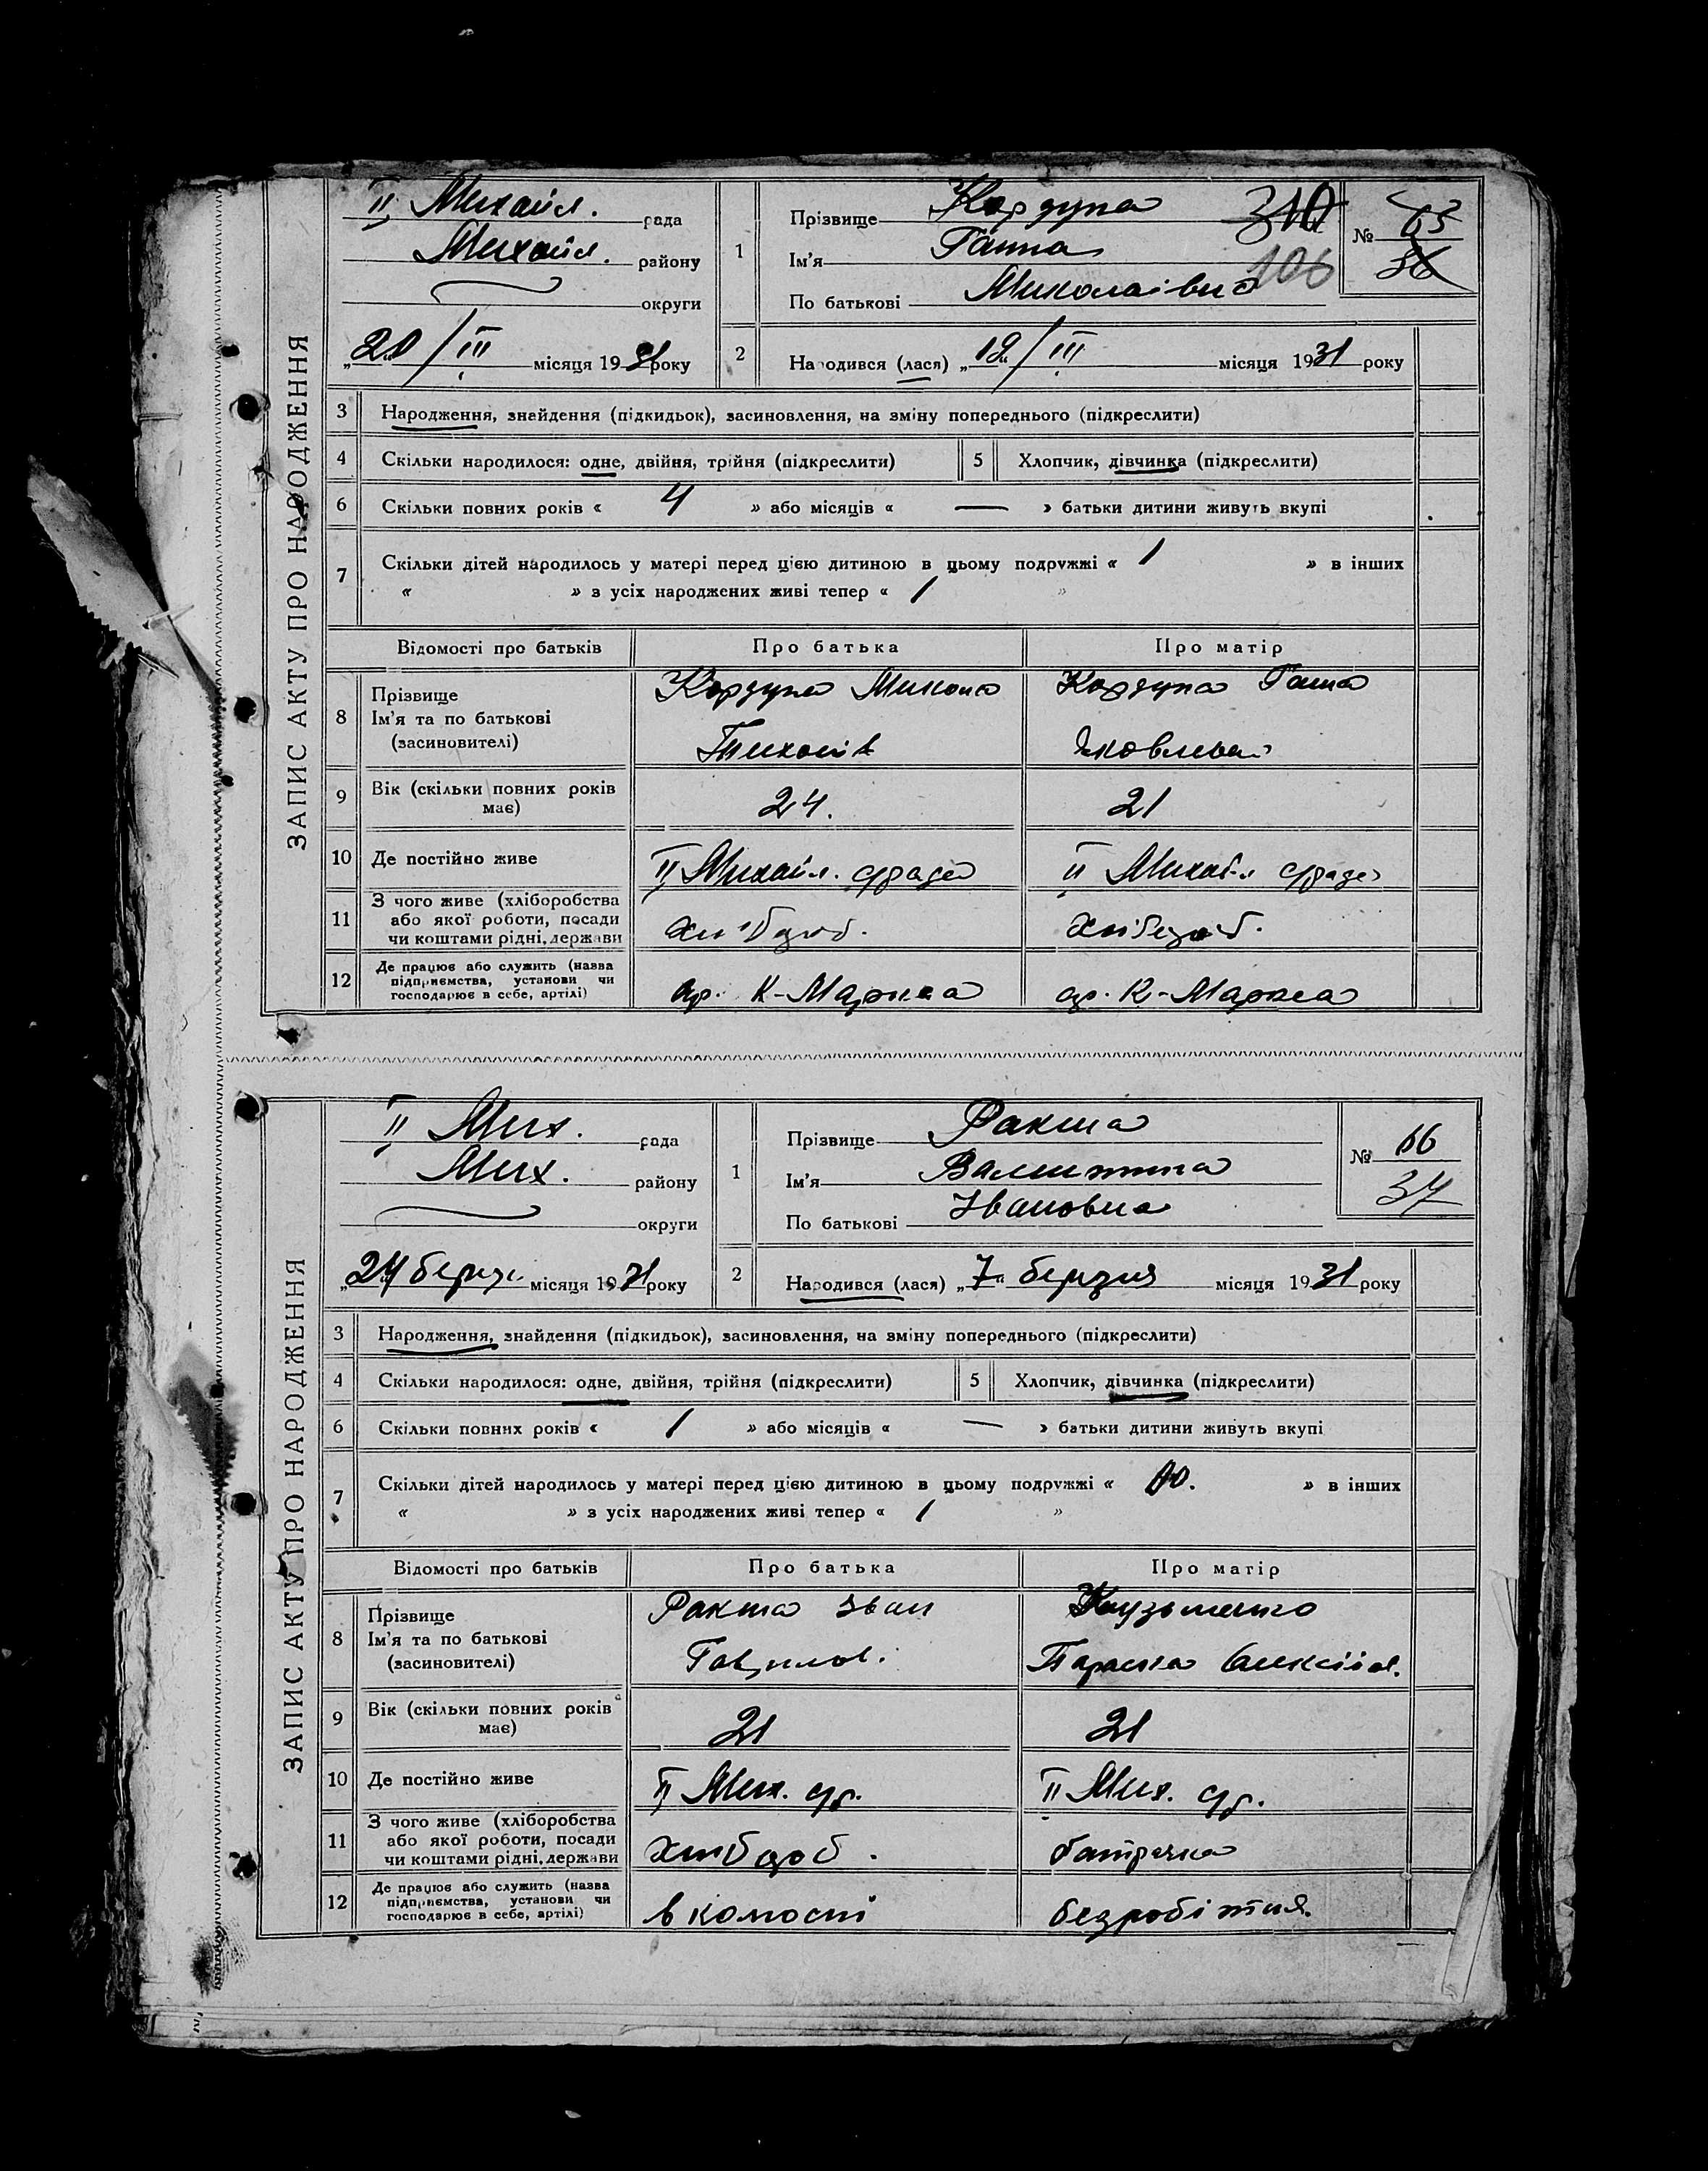 ЗАПИС АКТУ ПРО НАРОДЖЕННЯ
II Михайл. рада
Михайл. району
округи
„20/III місяця 1931 року
1 Прізвище Кордупа 310
Ім'я Ганна 106
По батькові Миколаівна
№ 65
36
2 Народився (лася) „12/III місяця 1931 року
3 Народження, знайдення (підкидьок), засиновлення, на зміну попереднього (підкреслити)
4 Скільки народилося: одне, двійня, трійня (підкреслити) 5 Хлопчик, дівчинка (підкреслити)
6 Скільки повних років « 4 » або місяців « — » батьки дитини живуть вкупі
7 Скільки дітей народилось у матері перед цією дитиною в цьому подружжі « 1 » в інших
« » з усіх народжених живі тепер « 1 »
Відомості про батьків Про батька Про матір
8 Прізвище Ім'я та по батькові (засиновителі) Кордупа Микола Кордупа Ганна
Яковлевна
9 Вік (скільки повних років має) 24. 21
10 Де постійно живе II Михайл. с/рада II Михайл с/рада
11 З чого живе (хліборобства або якої роботи, посади чи коштами рідні, держави
12 Де працює або служить (назва підприємства, установи чи господарює в себе, артілі) ар. К-Маркса ар. К-Маркса
ЗАПИС АКТУ ПРО НАРОДЖЕННЯ
II Мих. рада
Мих. району
округи
„24 березн місяця 1931 року
1 Прізвище Ракша
Ім'я Валинтина
По батькові Івановна
№ 66
37
2 Народився (лася) „7" березня місяця 1931 року
3 Народження, знайдення (підкидьок), засиновлення, на зміну попереднього (підкреслити)
4 Скільки народилося: одне, двійня, трійня (підкреслити) 5 Хлопчик, дівчинка (підкреслити)
6 Скільки повних років « 1 » або місяців « — » батьки дитини живуть вкупі
7 Скільки дітей народилось у матері перед цією дитиною в цьому подружжі « » в інших
« » з усіх народжених живі тепер « 1 »
Відомості про батьків Про батька Про матір
8 Прізвище Ім'я та по батькові (засиновителі) Ракша Іван Кузьменко
Гаврилов. Параска Олексіїв.
9 Вік (скільки повних років має) 21 21
10 Де постійно живе II Мих. с/р. II Мих. с/р.
11 З чого живе (хліборобства або якої роботи, посади чи коштами рідні, держави батрачка
12 Де працює або служить (назва підприємства, установи чи господарює в себе, артілі) в комост безробітня.